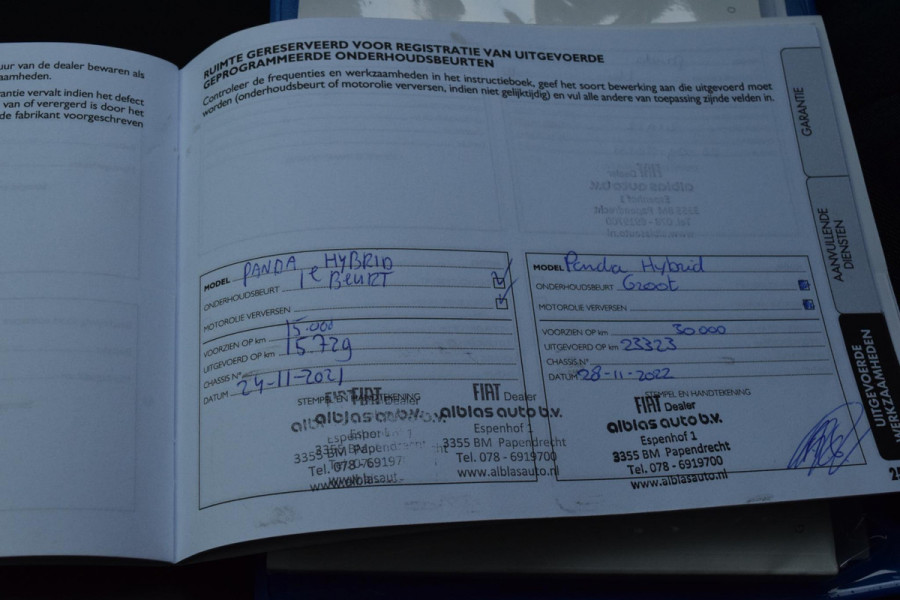 uur van de dealer bewaren als
aamheden.
antie vervalt indien het defect
van of verergerd is door het
de fabrikant voorgeschreven
RUIMTE GERESERVEERD VOOR REGISTRATIE VAN UITGEVOERDE
GEPROGRAMMEERDE ONDERHOUDSBEURTEN
Controleer de frequenties en werkzaamheden in het instructieboek, geef het soort bewerking aan die uitgevoerd moet
worden (onderhoudsbeurt of motorolie verversen, indien niet gelijktijdig) en vul alle andere van toepassing zijnde velden in.
MODEL PANDA HYBRID
ONDERHOUDSBEURT 1e BEURT
MOTOROLIE VERVERSEN
VOORZIEN OP km 15.000
UITGEVOERD OP km 15.729
CHASSIS N°
DATUM 24-11-2021
STEMPEL EN HANDTEKENING
FIAT Dealer
alblas auto b.v.
Espenhof 1
3355 BM Papendrecht
Tel. 078-69197
FIAT Dealer
alblas auto b.v.
Espenhof 1
3355 BM Papendrecht
Tel. 078 - 6919700
www.alblasauto.nl
MODEL Panda Hybrid
ONDERHOUDSBEURT Groot
MOTOROLIE VERVERSEN
VOORZIEN OP km 30.000
UITGEVOERD OP km 23323
CHASSIS N°
DATUM 28-11-2022
STEMPEL EN HANDTEKENING
FIAT Dealer
alblas auto b.v.
Espenhof 1
3355 BM Papendrecht
Tel. 078 - 6919700
www.alblasauto.nl
GARANTIE
AANVULLENDE
DIENSTEN
UITGEVOERDE
WERKZAAMHEDEN